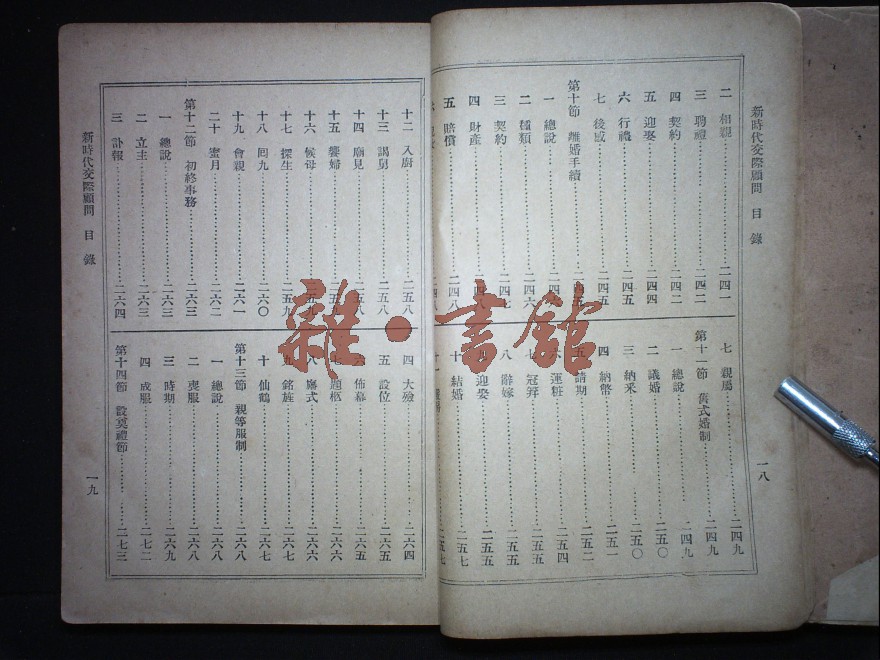 新時代交際顧問 目錄
二 相親 二四一
三 聘禮 二四二
四 契約 二四二
五 迎娶 二四四
六 行禮 二四五
七 後感 二四五
第十節 離婚手續
一 總說
二 種類 二四六
三 契約 二四七
四 財產
五 賠償 二四八
七 親屬 二四九
第十一節 舊式婚制 二四九
一 總說 二四九
二 議婚 二五〇
三 納采 二五〇
四 納幣 二五一
請期 二五二
運粧 二五四
冠笄 二五五
八 辭嫁 二五五
迎娶 二五五
十 結婚 二五七
一八
十二 入廚 二五八
十三 謁舅 二五八
十四 廟見
十五 饗婦
十六 候母
十七 探生 二五九
十八 回九 二六〇
十九 會親 二六一
二十 蜜月 二六二
第十二節 初終事務 二六三
一 總說 二六三
二 立主 二六三
三 訃報 二六四
四 大殮 二六四
五 設位 二六五
佈幕 二六五
題柩 二六六
八 廳式 二六六
銘旌 二六七
十 仙鶴 二六七
第十三節 親等服制 二六八
一 總說 二六八
二 喪服 二六八
三 時期 二六九
四 成服 二七二
第十四節 設奠禮節 二七三
新時代交際顧問 目錄
一九
雜·書館